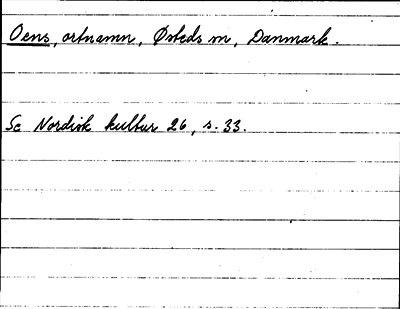 Oens, ortnamn, Østeds sn, Danmark.
Se Nordisk kultur 26, s. 33.